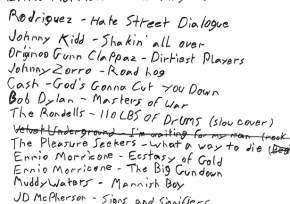 Rodriguez - Hate Street Dialogue
Johnny Kidd - Shakin' all over
Originoo Gunn Clappaz - Dirtiest Players
Johnny Zorro - Road Hog
Cash - God's Gonna Cut You Down
Bob Dylan - Masters of War
The Rondells - 110 LBS OF DRUMS (slow cover)
Velvet Underground - I'm waiting for my man (rock
The Pleasure Seekers - what a way to die (
Ennio Morricone - Ecstasy of Gold
Ennio Morricone - The Big Gundown
Muddy Waters - Mannish Boy
JD McPherson - Signs and Signifiers